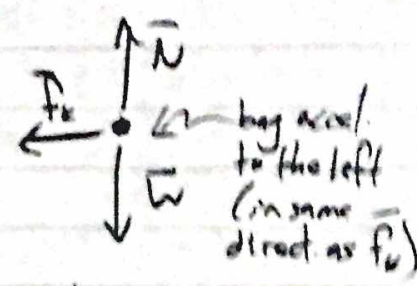 N
fk
bag accel.
to the left
W
(in same
direct. as fk)